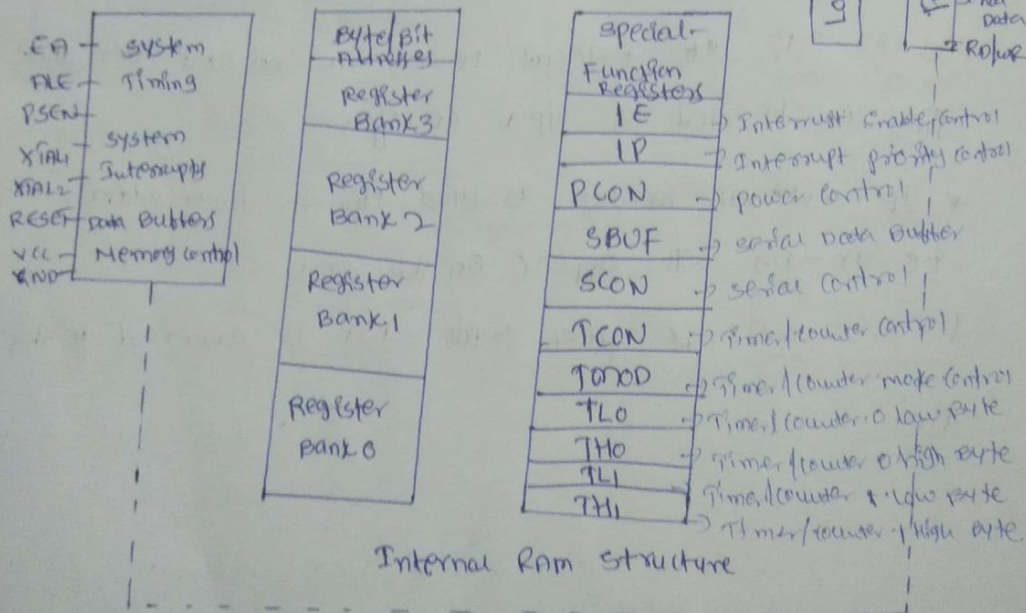 EA
ALE
PSEN
XTAL1
XTAL2
RESET
VCC
GND
System
Timing
System
Interrupts
Data Buffers
Memory Control
Byte/Bit
Addresses
Register
Bank 3
Register
Bank 2
Register
Bank 1
Register
Bank 0
Special-
Function
Registers
IE
IP
PCON
SBUF
SCON
TCON
TMOD
TL0
TH0
TL1
TH1
Interrupt Enable Control
Interrupt priority Control
power control
serial Data Buffer
serial control
Timer/counter control
Timer/counter mode control
Timer/counter 0 low Byte
Timer/counter 0 high Byte
Timer/counter 1 low Byte
Timer/counter 1 high Byte
9
Data
RD/WR
Internal RAM Structure